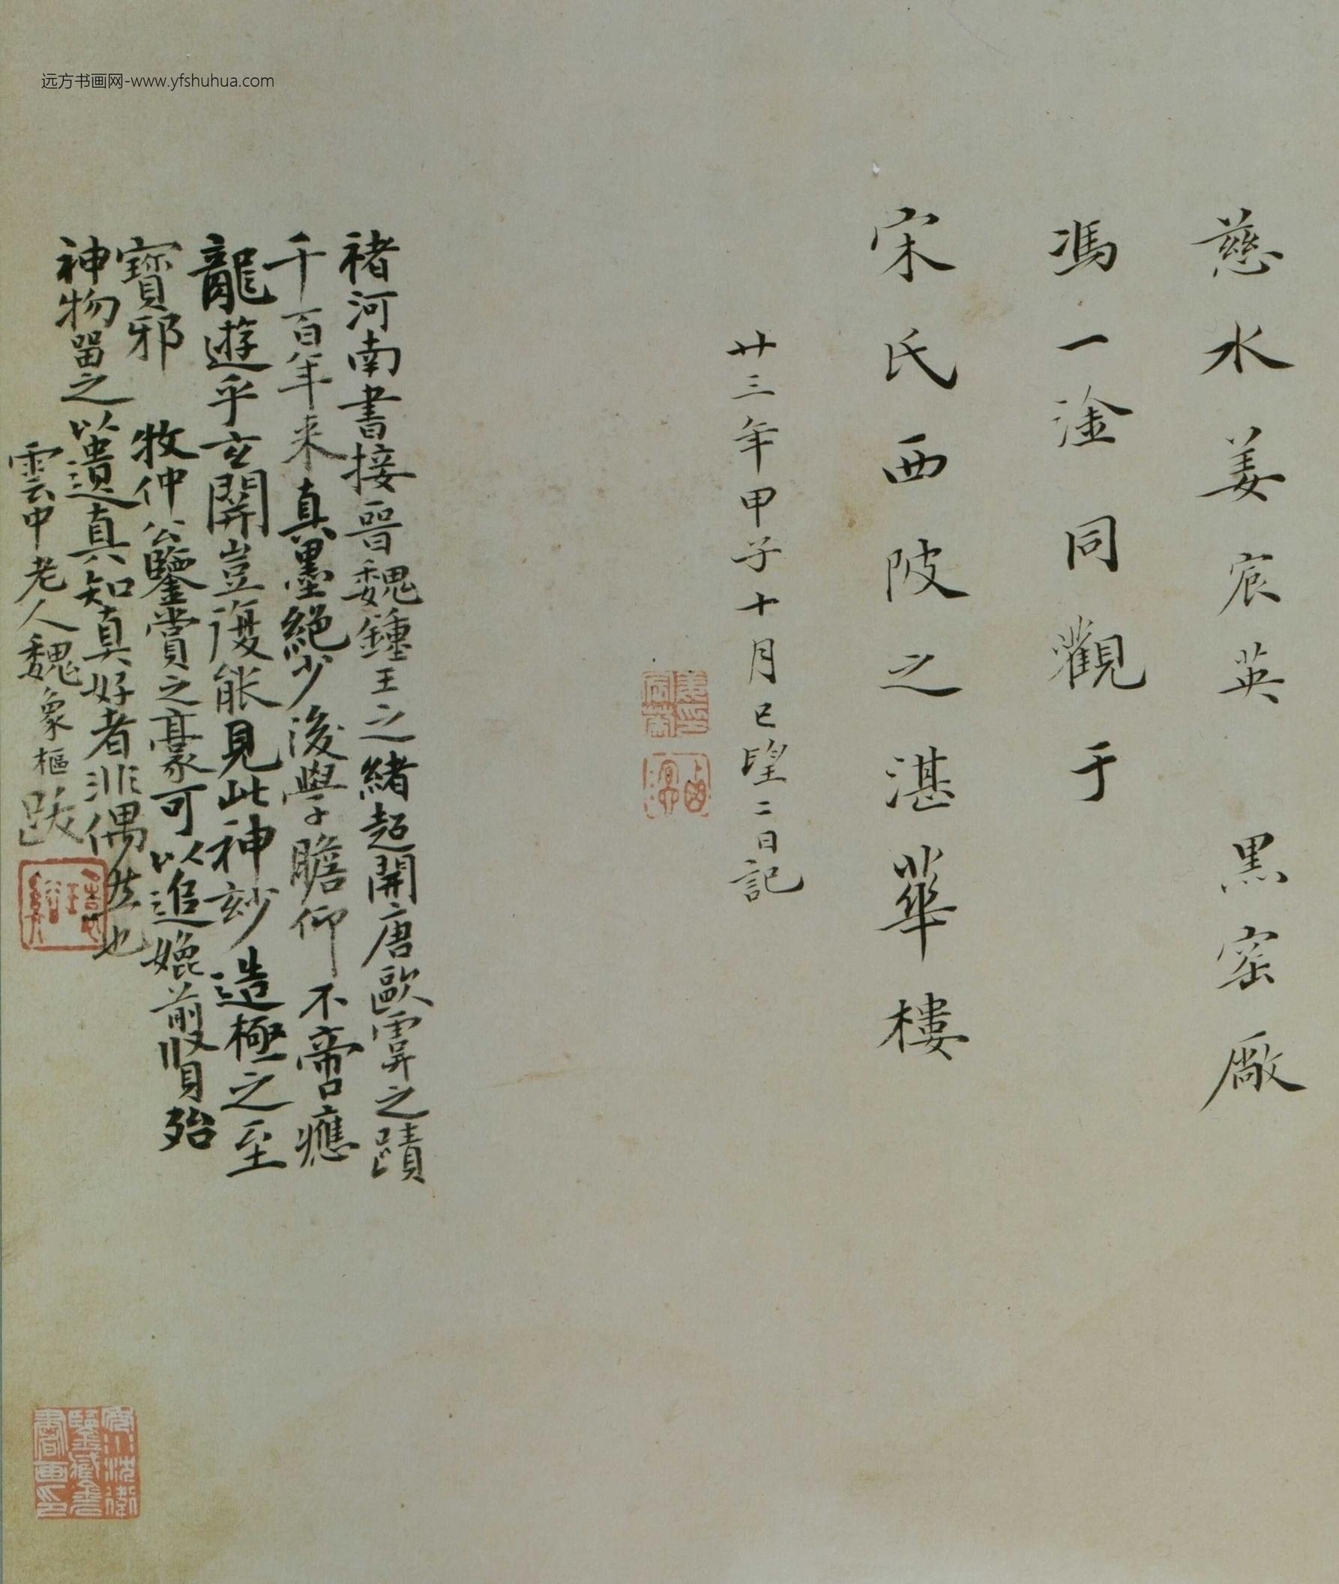 远方书画网-www.yfshuhua.com
慈水姜宸英 黑窑厰
馮一淦同觀于
宋氏西陂之湛華樓
廿三年甲子十月已望二日記
褚河南書接晉魏鍾王之緒超開唐歐虞之蹟
千百年来真墨絕少後學瞻仰不啻癙
龍遊乎玄閞豈復能見此神妙造極之至
寶邪 牧仲公鑒賞之豪可以追媲前賢殆
神物畱之以遺真知真好者非偶然也
雲中老人魏象樞跋